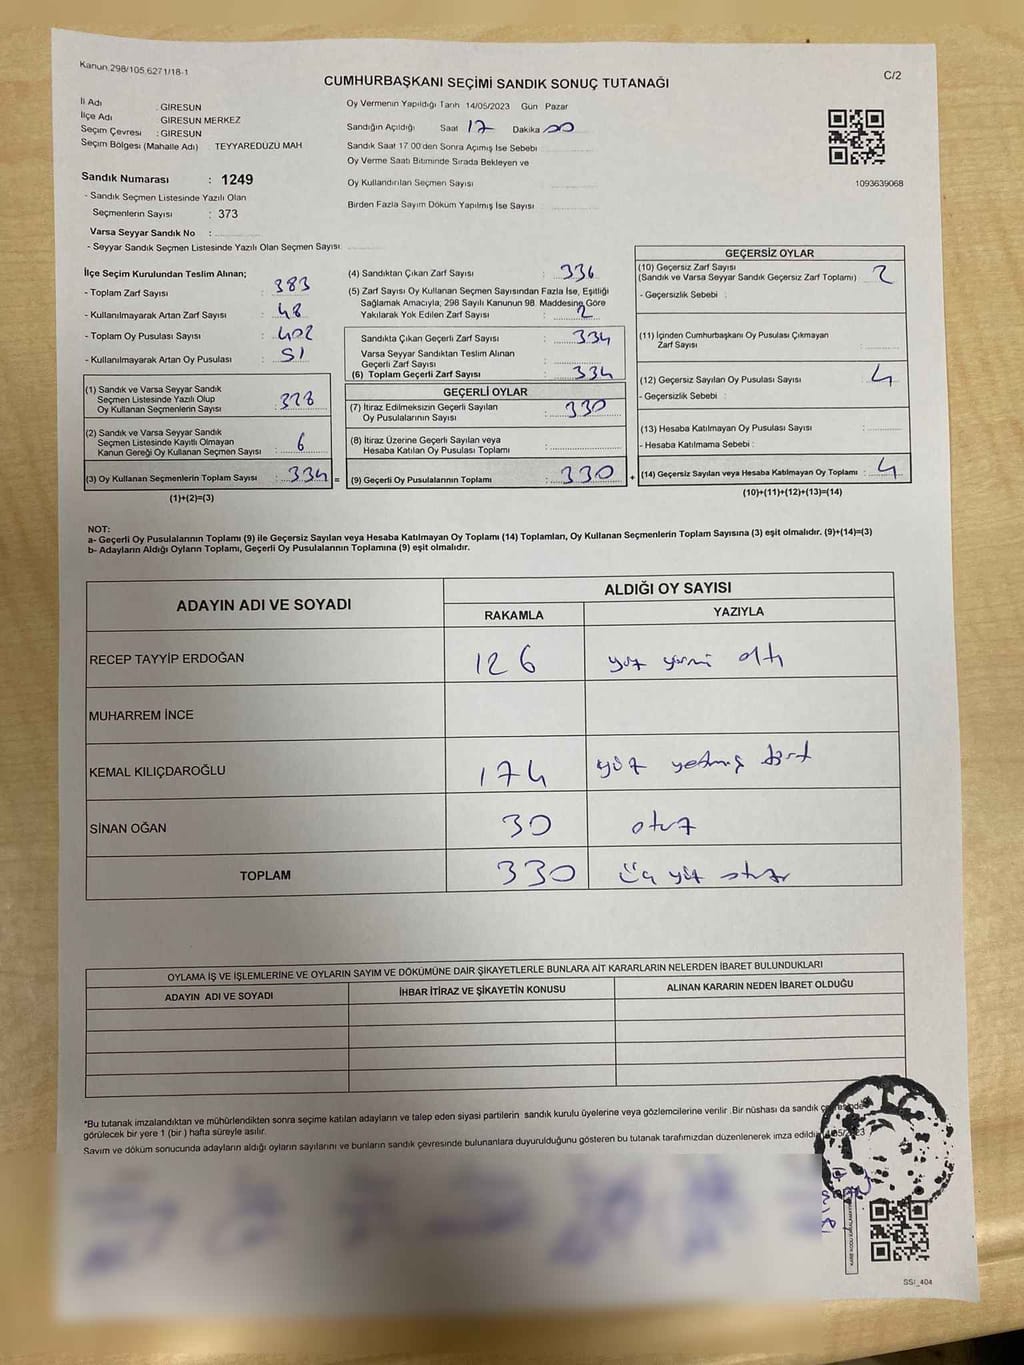 Kanun 298/105,6271/18-1
C/2
CUMHURBAŞKANI SEÇİMİ SANDIK SONUÇ TUTANAĞI
İl Adı : GİRESUN
İlçe Adı GİRESUN MERKEZ
Seçim Çevresi : GİRESUN
Seçim Bölgesi (Mahalle Adı) TEYYAREDUZU MAH
Oy Vermenin Yapıldığı Tarih 14/05/2023 Gün Pazar
Sandığın Açıldığı Saat 17 Dakika 00
Sandık Saat 17 00'den Sonra Açımış İse Sebebi
Oy Verme Saati Bitiminde Sırada Bekleyen ve
Oy Kullandırılan Seçmen Sayısı
Birden Fazla Sayım Döküm Yapılmış İse Sayısı
1093639068
Sandık Numarası : 1249
- Sandık Seçmen Listesinde Yazılı Olan
Seçmenlerin Sayısı : 373
Varsa Seyyar Sandık No :
- Seyyar Sandık Seçmen Listesinde Yazılı Olan Seçmen Sayısı
İlçe Seçim Kurulundan Teslim Alınan;
- Toplam Zarf Sayısı : 383
- Kullanılmayarak Artan Zarf Sayısı : 48
- Toplam Oy Pusulası Sayısı : 402
- Kullanılmayarak Artan Oy Pusulası : 51
(1) Sandık ve Varsa Seyyar Sandık
Seçmen Listesinde Yazılı Olup
Oy Kullanan Seçmenlerin Sayısı : 328
(2) Sandık ve Varsa Seyyar Sandık
Seçmen Listesinde Kayıtlı Olmayan
Kanun Gereği Oy Kullanan Seçmen Sayısı : 6
(3) Oy Kullanan Seçmenlerin Toplam Sayısı : 334 =
(1)+(2)=(3)
(4) Sandıktan Çıkan Zarf Sayısı : 336
(5) Zarf Sayısı Oy Kullanan Seçmen Sayısından Fazla İse, Eşitliği
Sağlamak Amacıyla; 298 Sayılı Kanunun 98. Maddesine Göre
Yakılarak Yok Edilen Zarf Sayısı : 2
Sandıkta Çıkan Geçerli Zarf Sayısı : 334
Varsa Seyyar Sandıktan Teslim Alınan
Geçerli Zarf Sayısı
(6) Toplam Geçerli Zarf Sayısı : 334
GEÇERLİ OYLAR
(7) İtiraz Edilmeksizin Geçerli Sayılan
Oy Pusulalarının Sayısı : 330
(8) İtiraz Üzerine Geçerli Sayılan veya
Hesaba Katılan Oy Pusulası Toplamı :
(9) Geçerli Oy Pusulalarının Toplamı : 330 +
GEÇERSİZ OYLAR
(10) Geçersiz Zarf Sayısı
(Sandık ve Varsa Seyyar Sandık Geçersiz Zarf Toplamı) : 2
- Geçersizlik Sebebi :
(11) İçinden Cumhurbaşkanı Oy Pusulası Çıkmayan
Zarf Sayısı :
(12) Geçersiz Sayılan Oy Pusulası Sayısı : 4
- Geçersizlik Sebebi :
(13) Hesaba Katılmayan Oy Pusulası Sayısı :
- Hesaba Katılmama Sebebi :
(14) Geçersiz Sayılan veya Hesaba Katılmayan Oy Toplamı : 4
(10)+(11)+(12)+(13)=(14)
NOT:
a- Geçerli Oy Pusulalarının Toplamı (9) ile Geçersiz Sayılan veya Hesaba Katılmayan Oy Toplamı (14) Toplamları, Oy Kullanan Seçmenlerin Toplam Sayısına (3) eşit olmalıdır. (9)+(14)=(3)
b- Adayların Aldığı Oyların Toplamı, Geçerli Oy Pusulalarının Toplamına (9) eşit olmalıdır.
ADAYIN ADI VE SOYADI ALDIĞI OY SAYISI
RAKAMLA YAZIYLA
RECEP TAYYİP ERDOĞAN 126 yüz yirmi altı
MUHARREM İNCE
KEMAL KILIÇDAROĞLU 174 yüz yetmiş dört
SİNAN OĞAN 30 otuz
TOPLAM 330 üç yüz otuz
OYLAMA İŞ VE İŞLEMLERİNE VE OYLARIN SAYIM VE DÖKÜMÜNE DAİR ŞİKAYETLERLE BUNLARA AİT KARARLARIN NELERDEN İBARET BULUNDUKLARI
ADAYIN ADI VE SOYADI İHBAR İTİRAZ VE ŞİKAYETİN KONUSU ALINAN KARARIN NEDEN İBARET OLDUĞU
*Bu tutanak imzalandıktan ve mühürlendikten sonra seçime katılan adayların ve talep eden siyasi partilerin sandık kurulu üyelerine veya gözlemcilerine verilir .Bir nüshası da sandık
görülecek bir yere 1 (bir ) hafta süreyle asılır.
Sayım ve döküm sonucunda adayların aldığı oyların sayılarını ve bunların sandık çevresinde bulunanlara duyurulduğunu gösteren bu tutanak tarafımızdan düzenlenerek imza edildi.
SSI_404